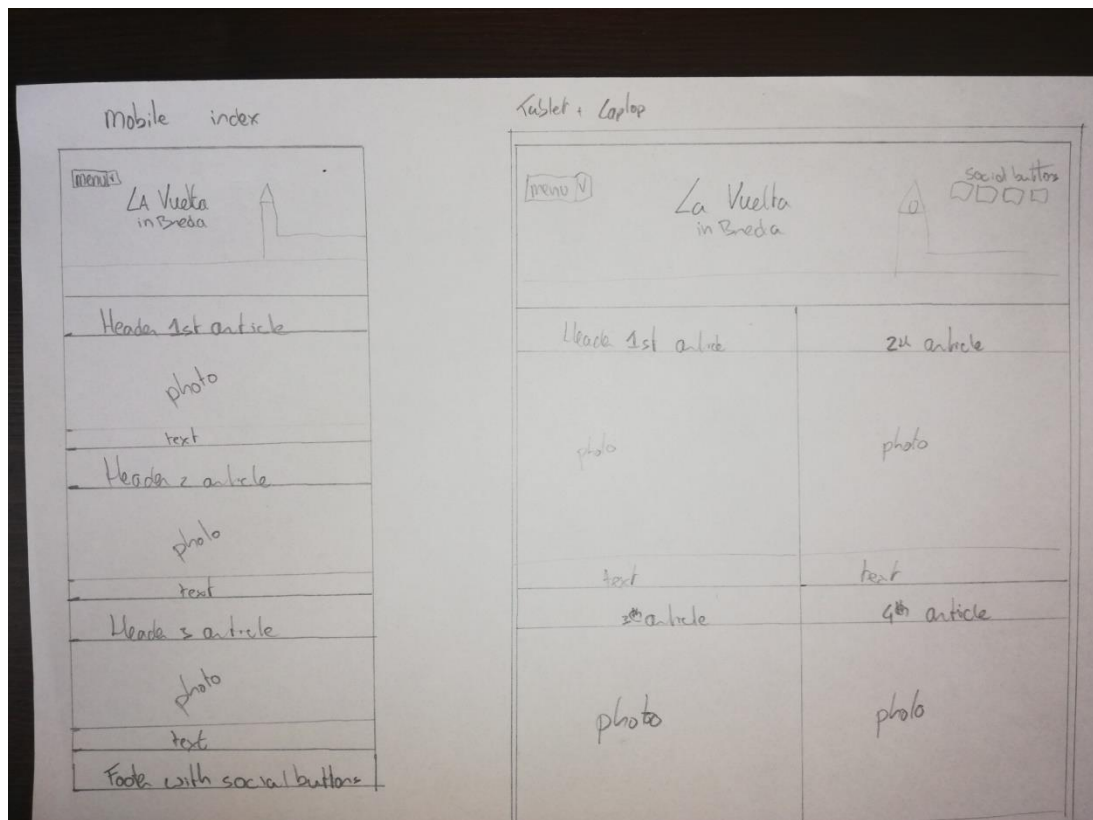 Mobile index
menu v
LA Vuelta
in Breda
Header 1st article
photo
text
Header 2 article
photo
text
Header 3 article
photo
text
Footer with social buttons
Tablet + Laptop
menu V
La Vuelta
in Breda
social buttons
Header 1st article
2d article
photo
photo
text
text
3th article
4th article
photo
photo